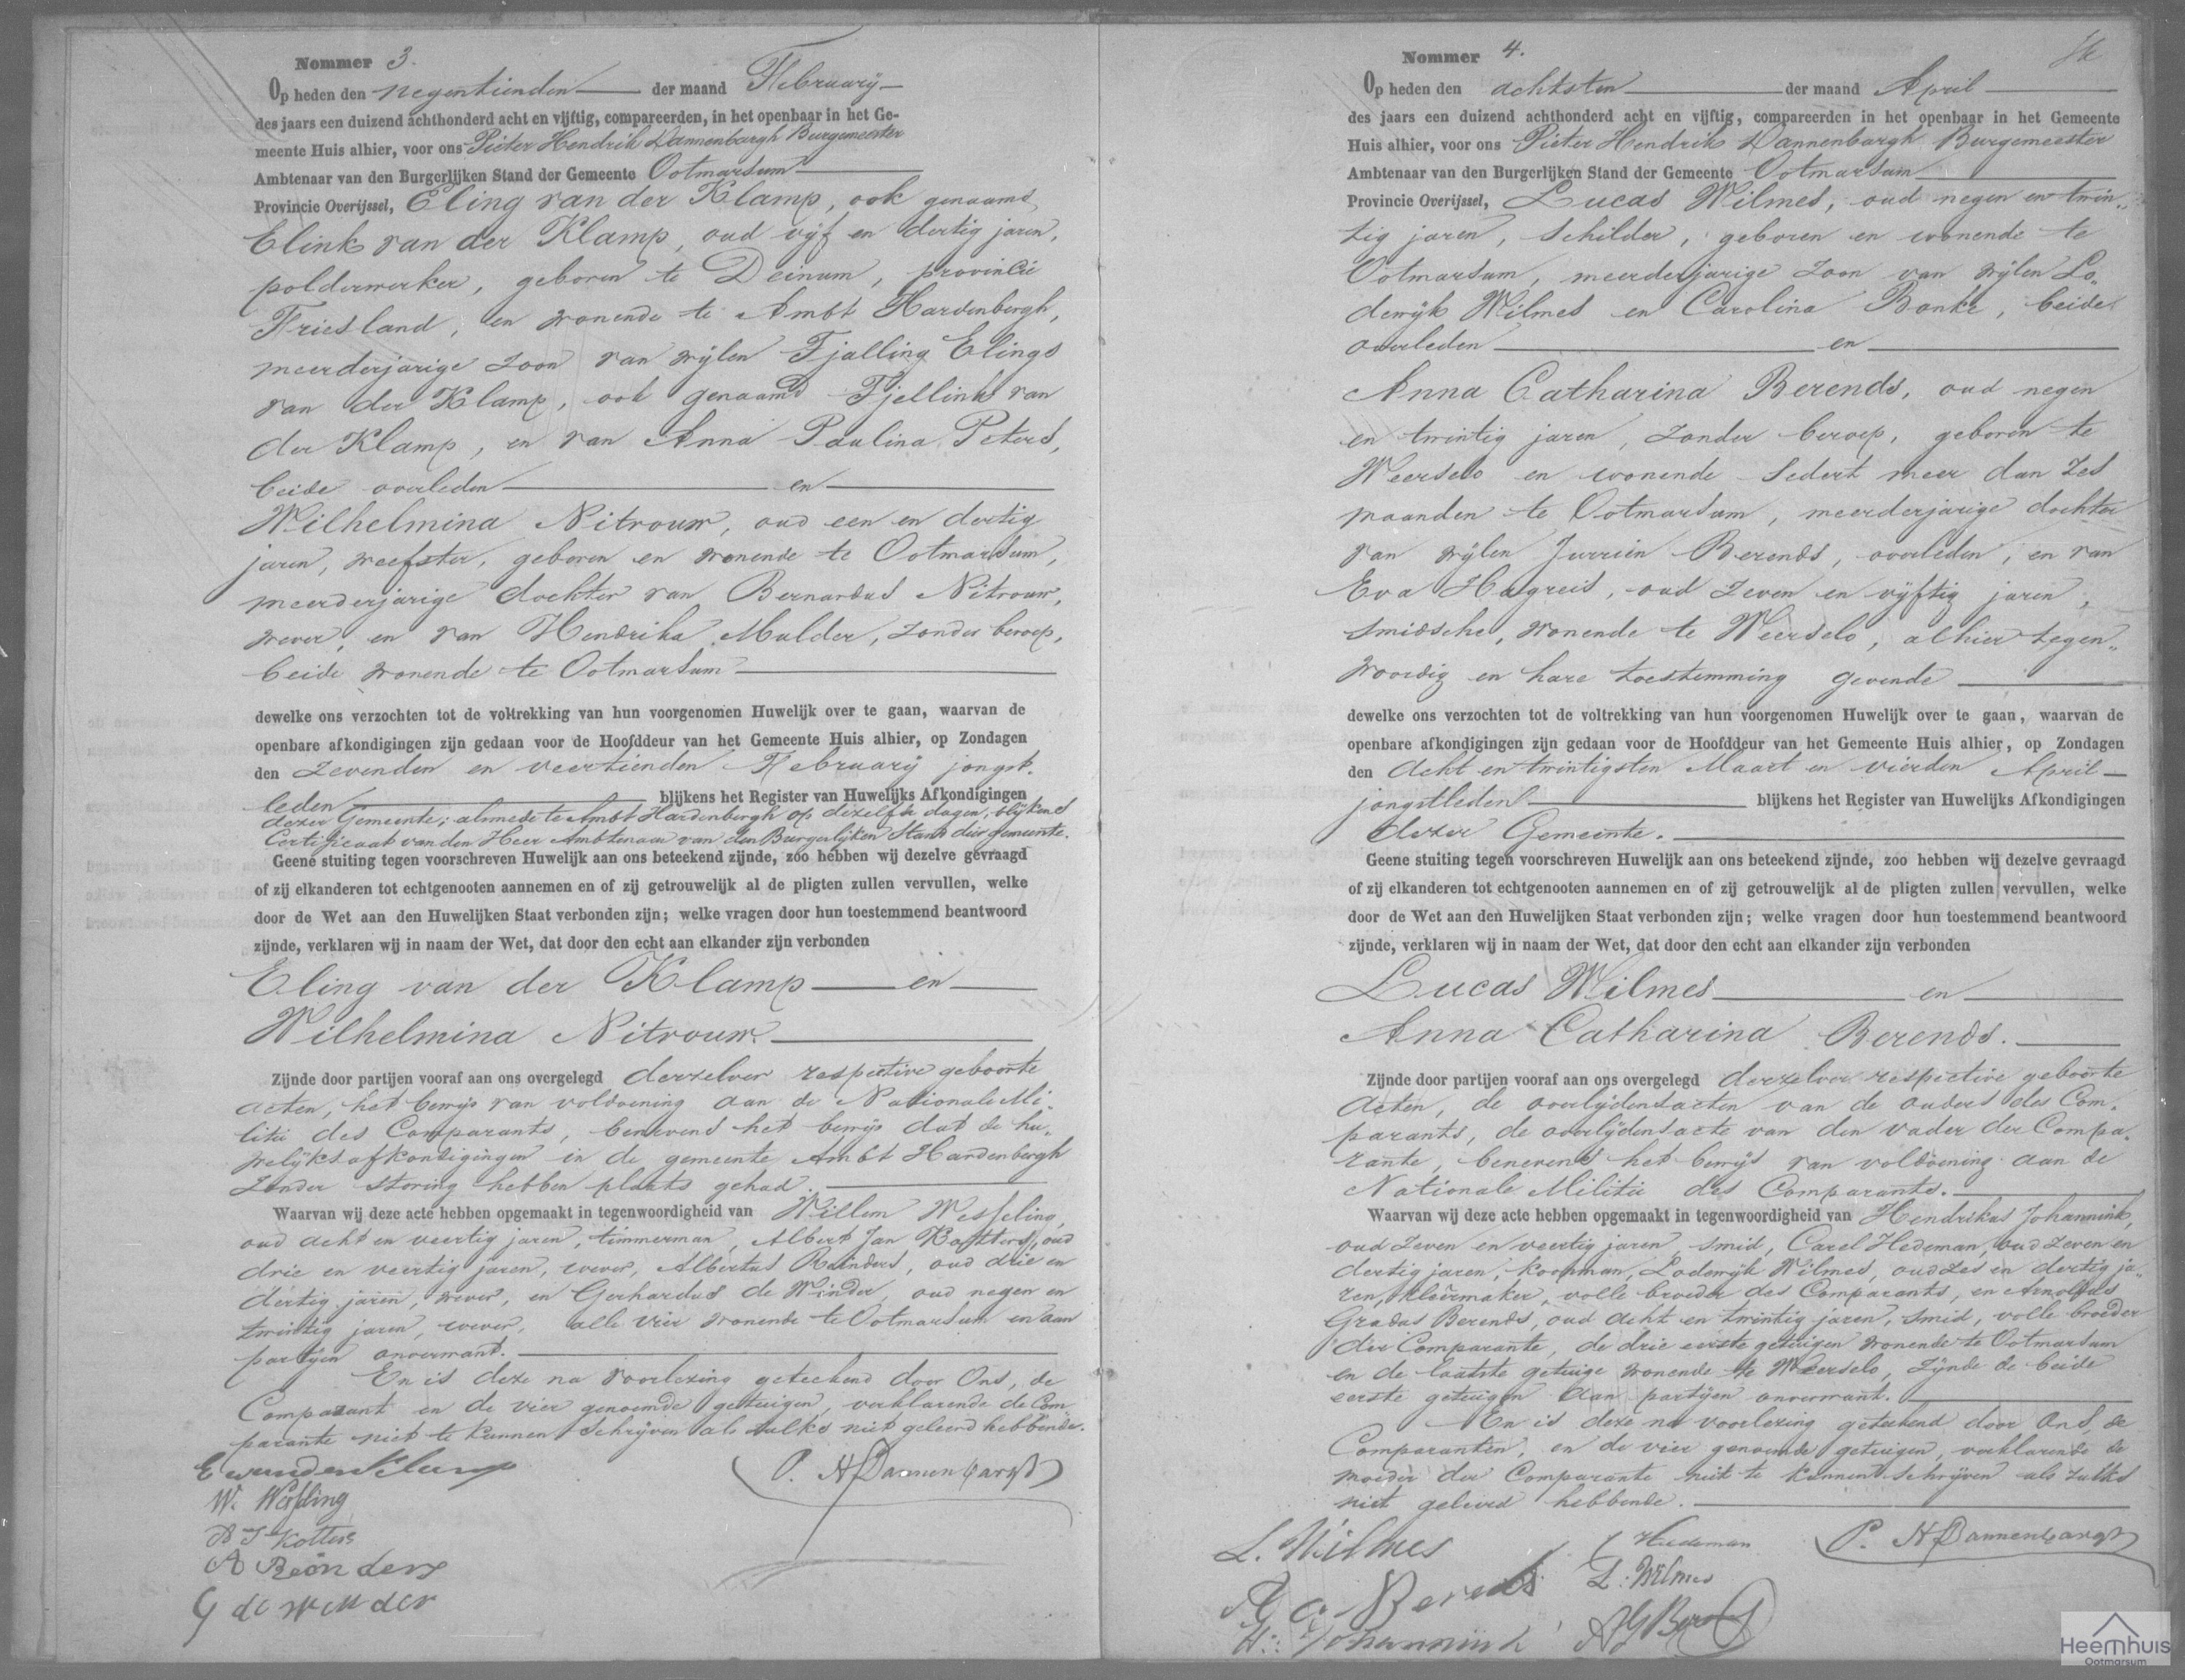 Nommer 3.
Op heden den negentienden der maand February
des jaars een duizend achthonderd acht en vijftig, compareerden, in het openbaar in het Ge-
meente Huis alhier, voor ons Pieter Hendrik Dannenbargh Burgemeester
Ambtenaar van den Burgerlijken Stand der Gemeente Ootmarsum
Provincie Overijssel, Eling van der Klamp, ook genaamd
Elink van der Klamp, oud vijf en dertig jaren,
polderwerker, geboren te Deinum, provincie
Friesland, en wonende te Ambt Hardenbergh,
meerderjarige zoon van wijlen Tjalling Elings
van der Klamp, ook genaamd Tjellinks van
der Klamp, en van Anna Paulina Peters,
beide overleden en
Wilhelmina Nitrouw, oud een en dertig
jaren, weefster, geboren en wonende te Ootmarsum,
meerderjarige dochter van Bernardus Nitrouw,
wever, en van Hendrika Mulder, zonder beroep,
beide wonende te Ootmarsum
dewelke ons verzochten tot de voltrekking van hun voorgenomen Huwelijk over te gaan, waarvan de
openbare afkondigingen zijn gedaan voor de Hoofddeur van het Gemeente Huis alhier, op Zondagen
den zevenden en veertienden February jongst-
leden blijkens het Register van Huwelijks Afkondigingen
dezer Gemeente; alsmede te Ambt Hardenbergh op dezelfde dagen, blijkens
Certificaat van den Heer Ambtenaar van den Burgerlijken Stand dier gemeente.
Geene stuiting tegen voorschreven Huwelijk aan ons beteekend zijnde, zoo hebben wij dezelve gevraagd
of zij elkanderen tot echtgenooten aannemen en of zij getrouwelijk al de pligten zullen vervullen, welke
door de Wet aan den Huwelijken Staat verbonden zijn; welke vragen door hun toestemmend beantwoord
zijnde, verklaren wij in naam der Wet, dat door den echt aan elkander zijn verbonden
Eling van der Klamp en
Wilhelmina Nitrouw.
Zijnde door partijen vooraf aan ons overgelegd derzelver respective geboorte
acten, het bewijs van voldoening aan de Nationale Mi-
litie des Comparants, benevens het bewijs dat de hu-
welijksafkondigingen in de gemeente Ambt Hardenbergh
zonder storing hebben plaats gehad.
Waarvan wij deze acte hebben opgemaakt in tegenwoordigheid van Willem Wesseling,
oud acht en veertig jaren, timmerman, Albert Jan Kotters, oud
drie en veertig jaren, wever, Albertus Reinders, oud drie en
dertig jaren, wever, en Gerhardus de Winder, oud negen en
twintig jaren, wever, alle vier wonende te Ootmarsum en aan
partijen onvermant.
En is deze na voorlezing geteekend door Ons, de
Comparant en de vier genoemde getuigen, verklarende de Com
parante niet te kunnen schrijven als zulks niet geleerd hebbende.
E van der Klamp
P. H Dannenbargh
W. Wesseling
A J Kotters
A Reinders
G de Winder
Nommer 4.
Op heden den achtsten der maand April
des jaars een duizend achthonderd acht en vijftig, compareerden in het openbaar in het Gemeente
Huis alhier, voor ons Pieter Hendrik Dannenbargh Burgemeester
Ambtenaar van den Burgerlijken Stand der Gemeente Ootmarsum
Provincie Overijssel, Lucas Wilmes, oud negen en twin-
tig jaren, schilder, geboren en wonende te
Ootmarsum, meerderjarige zoon van wijlen Lo-
dewijk Wilmes en Carolina Bonke, beide
overleden en
Anna Catharina Berends, oud negen
en twintig jaren, zonder beroep, geboren te
Weerselo en wonende sedert meer dan zes
maanden te Ootmarsum, meerderjarige dochter
van wijlen Jurrien Berends, overleden, en van
Eva Hagreis, oud zeven en vijftig jaren,
smidsche, wonende te Weerselo, alhier tegen-
woordig en hare toestemming gevende
dewelke ons verzochten tot de voltrekking van hun voorgenomen Huwelijk over te gaan, waarvan de
openbare afkondigingen zijn gedaan voor de Hoofddeur van het Gemeente Huis alhier, op Zondagen
den acht en twintigsten Maart en vierden April
jongstleden blijkens het Register van Huwelijks Afkondigingen
dezer Gemeente.
Geene stuiting tegen voorschreven Huwelijk aan ons beteekend zijnde, zoo hebben wij dezelve gevraagd
of zij elkanderen tot echtgenooten aannemen en of zij getrouwelijk al de pligten zullen vervullen, welke
door de Wet aan den Huwelijken Staat verbonden zijn; welke vragen door hun toestemmend beantwoord
zijnde, verklaren wij in naam der Wet, dat door den echt aan elkander zijn verbonden
Lucas Wilmes en
Anna Catharina Berends.
Zijnde door partijen vooraf aan ons overgelegd derzelver respective geboorte
acten, de overlijdensacten van de ouders des Com-
parants, de overlijdensacte van den vader der Compa-
rante, benevens het bewijs van voldoening aan de
Nationale Militie des Comparants.
Waarvan wij deze acte hebben opgemaakt in tegenwoordigheid van Hendrikus Johannink,
oud zeven en veertig jaren, smid, Carel Hedeman, oud zeven en
dertig jaren, koopman, Lodewijk Wilmes, oud zes en dertig ja-
ren, kleermaker, volle broeder des Comparants, en Arnoldus
Gradus Berends, oud acht en twintig jaren, smid, volle broeder
der Comparante, de drie eerste getuigen wonende te Ootmarsum
en de laatste getuige wonende te Weerselo, zijnde de beide
eerste getuigen aan partijen onvermant.
En is deze na voorlezing geteekend door Ons, de
Comparanten, en de vier genoemde getuigen, verklarende de
moeder der Comparante niet te kunnen schrijven als zulks
niet geleerd hebbende.
L. Wilmes
Hedeman
P. H Dannenbargh
A C Berends
L. Wilmes
H: Johannink
A G Berends
Heemhuis
Ootmarsum